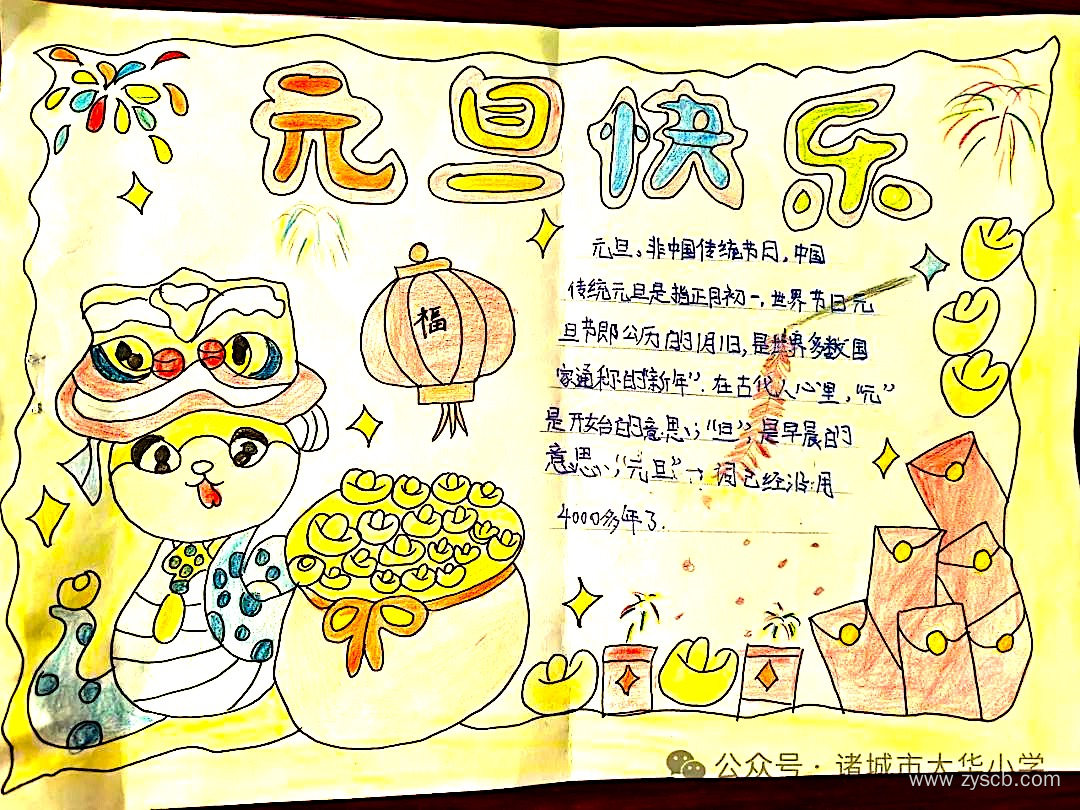 元旦快乐
福
元旦,非中国传统节日,中国
传统元旦是指正月初一,世界节日元
旦节即公历的1月1日,是世界多数国
家通称的“新年”.在古代人心里,“元”
是开始的意思,“旦”,是早晨的
意思,“元旦”一词已经沿用
4000多年了.
公众号·诸城市大华小学
www.zyscb.com